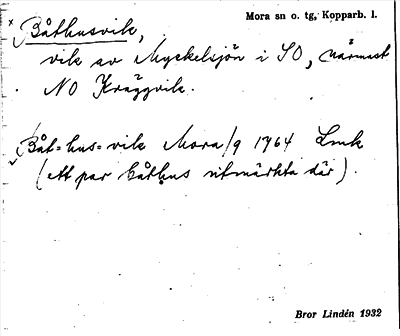 Mora sn o. tg, Kopparb. l.
Båthusvik,
vik av Myckelsjön i SO, närmast
NO Kräggvik.
Båt=hus=vik Mora/9 1764 Lmk
(ett par båthus utmärkta där).
Bror Lindén 1932